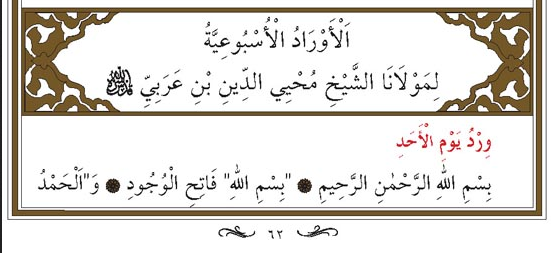 اَلْأَوْرَادُ الْأُسْبُوعِيَّةُ
لِمَوْلَانَا الشَّيْخِ مُحْيِي الدِّينِ بْنِ عَرَبِيِّ
وِرْدُ يَوْمِ الْأَحَدِ
بِسْمِ اللهِ الرَّحْمٰنِ الرَّحِيمِ ۞ "بِسْمِ اللهِ" فَاتِحِ الْوُجُودِ ۞ وَ"اَلْحَمْدُ
٦٢